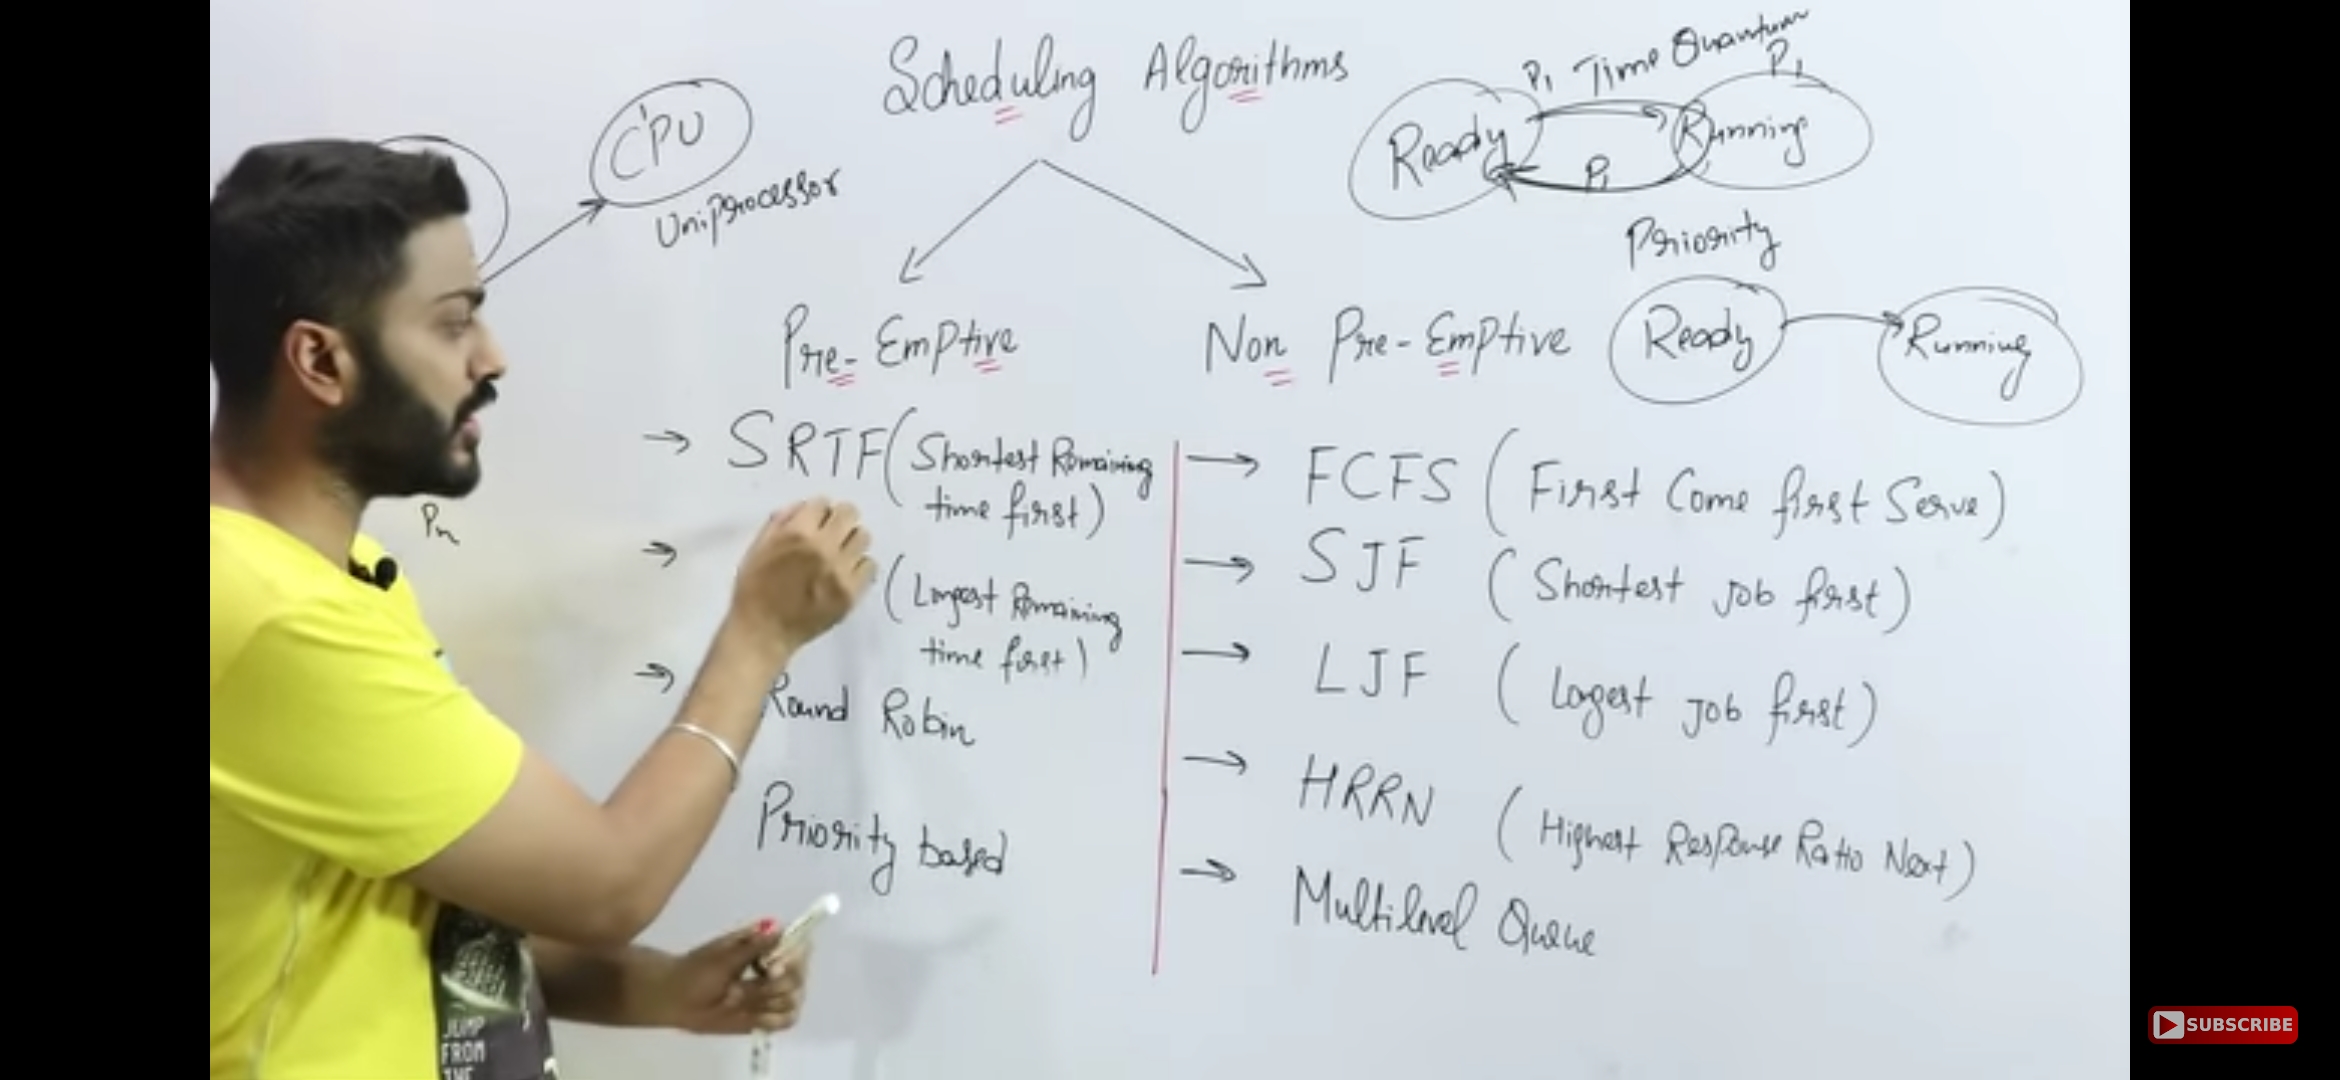 Scheduling Algorithms
CPU
Uniprocessor
P1 Time Quantum
P1
Ready
Running
P1
Priority
Pre-Emptive
Non Pre-Emptive
Ready
Running
→ SRTF (Shortest Remaining
time first)
→ (Longest Remaining
time first)
→ Round Robin
Priority based
Pn
→ FCFS (First Come first Serve)
→ SJF (Shortest Job first)
→ LJF (Longest Job first)
→ HRRN (Highest Response Ratio Next)
→ Multilevel Queue
JUMP
FROM
THE
SUBSCRIBE